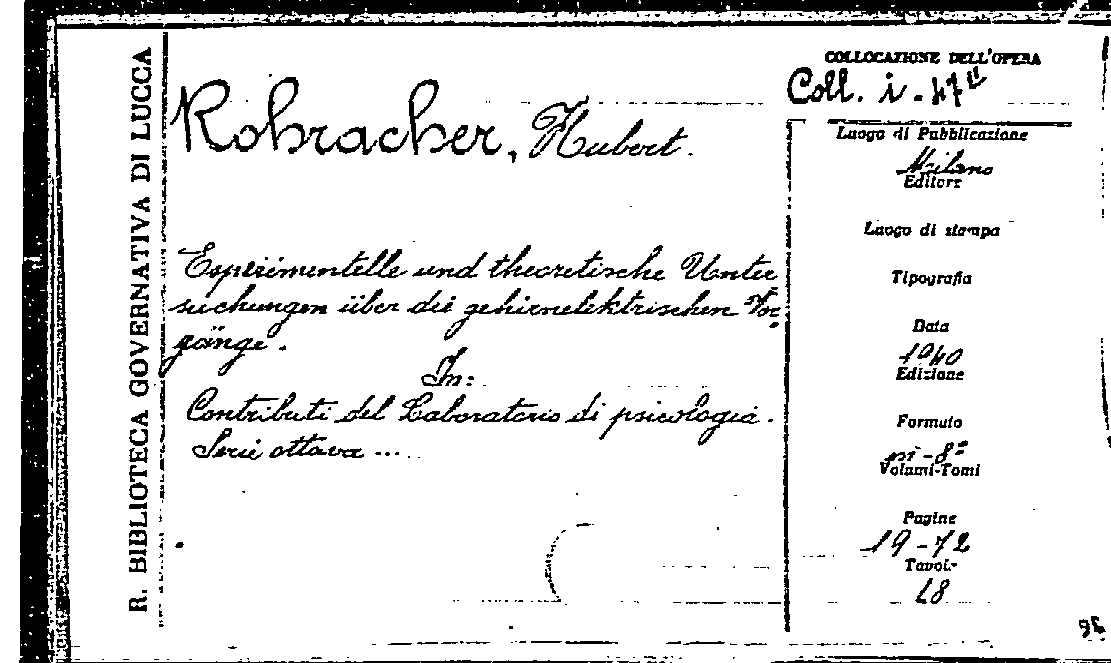 R. BIBLIOTECA GOVERNATIVA DI LUCCA
COLLOCAZIONE DELL'OPERA
Coll. i.
Rohracher, Hubert.
Luogo di Pubblicazione
Milano
Editore
Luogo di stampa
Experimentelle und theoretische Unter
suchungen über die gehirnelektrischen Vor
gänge.
Tipografia
Data
1940
Edizione
In:
Contributi del Laboratorio di psicologia.
Serie ottava ....
Formato
in-8°
Volumi-Tomi
Pagine
19-72
Tavol.